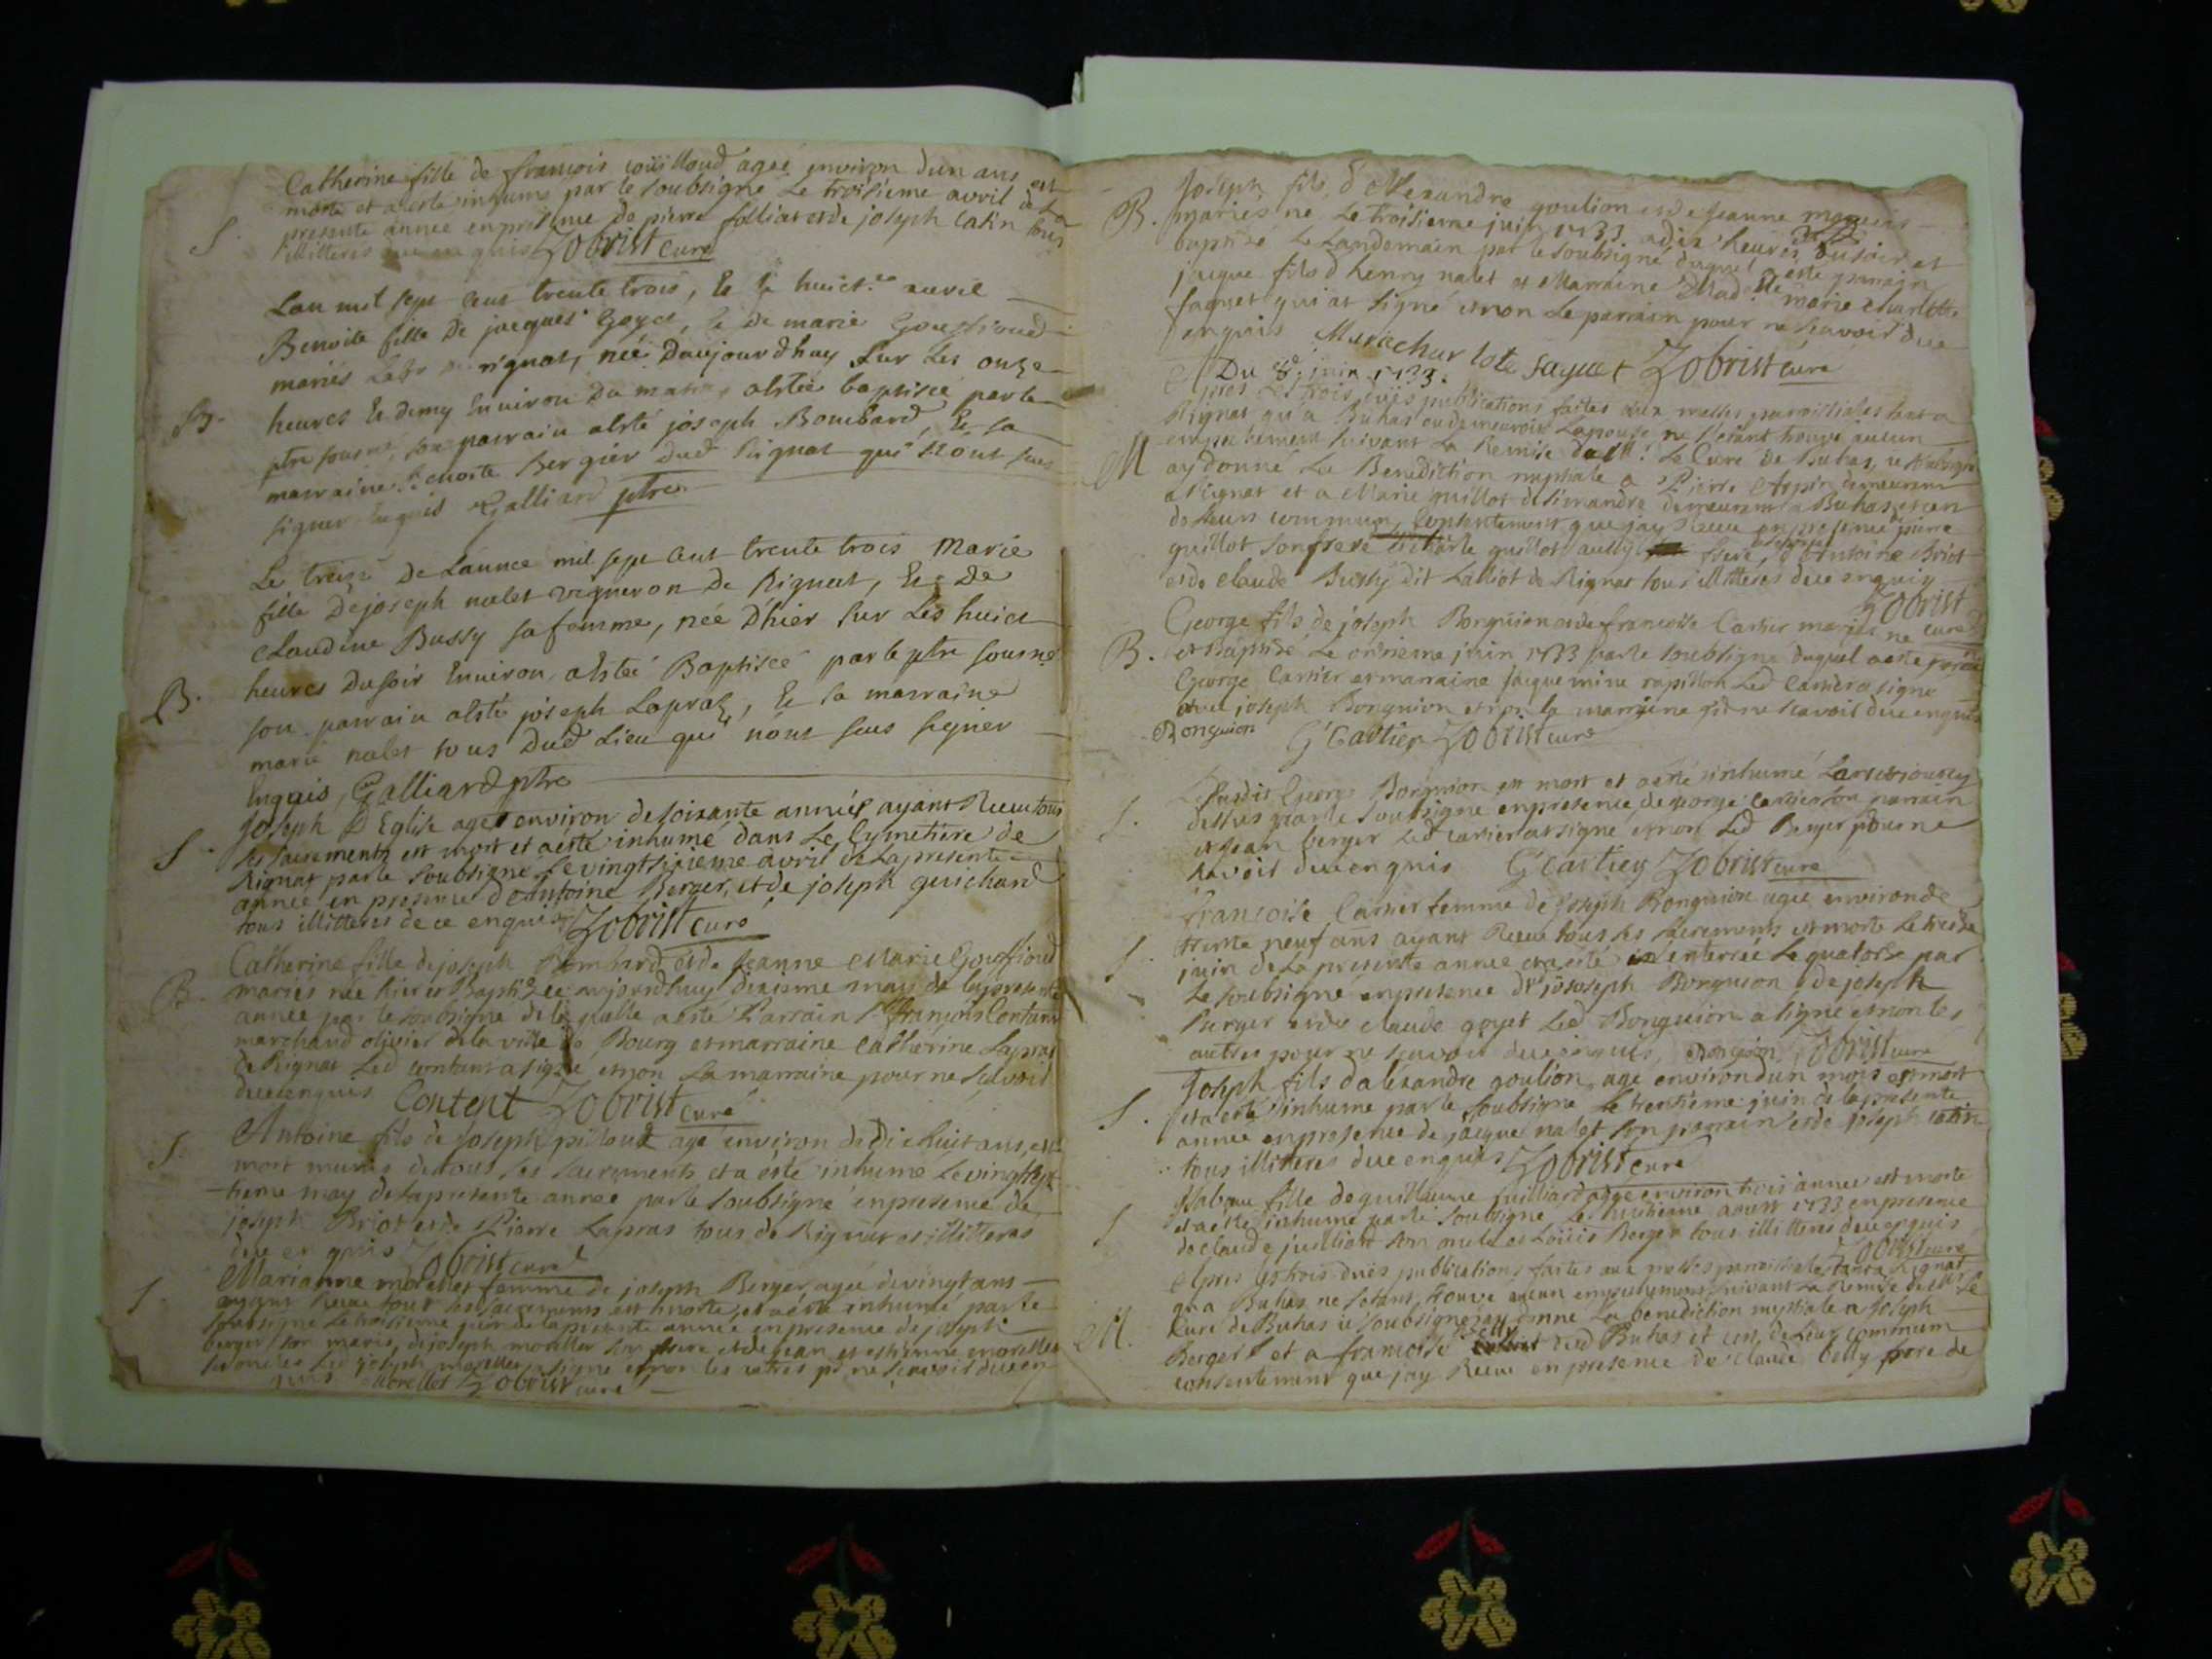 Catherine fille de francois coüilloud agée environ dun ans est
morte et a esté inhume par le soubsigné Le troisieme avril de la
presente année en presence de pierre folliat et de joseph catin tous
S. illitteres due enquis Zobrist curé
Lan mil sept cent trente trois, & le huict.me avril
Benoite fille de jacques Goyet, & de marie Gouffioud
mariés rignat, née Daujourdhuy sur les onze
B. heures & demy environ du matin a lstée baptisée par le
ptre sousné, son parrain alsté joseph Bombard, & sa
marraine Benoite Bergier dud Rignat qui nont sceu
signer Enquis Galliard ptre
Le treize De Lannee mil sept cent trente trois Marie
fille De joseph nalet vigneron de Rignat, & De
Claudine Bussy sa femme, née D'hier sur Les huict
heures Du soir Environ, alstée Baptisée par le ptre sousné
B. son parrain alsté joseph Lapraz, & sa marraine
marie nalet tous Dud Lieu qui nont sceu signer
Enquis, Galliard ptre
Joseph D Eglise agé environ de soixante années ayant Receu tous
S. ses sacrements est mort et a esté inhumé dans Le Cymetiere de
Rignat par le soubsigné Le vingtsixieme avril de la presente
année en presence d'antoine Berger, et de joseph guichard
tous illitteres de ce enquis Zobrist curé
Catherine fille de joseph Bombard et de Jeanne Marie Gouffioud
B. mariés née hier et Baptizée aujourdhuy dixieme may de la presente
année par le soubsigné de la quelle a esté Parrain Sr françois Contant
marchand olivier de la ville de Bourg et marraine Catherine Lapras
de Rignat Led contant a signé et non La marraine pour ne scavoir
due enquis Content Zobrist curé
S. Antoine fils de Joseph pilloud agé environ de dixhuit ans, est
mort munis de tous ses sacrements et a esté inhumé Le vingtsept
tieme may de la presente année par le soubsigné en presence de
joseph Briot et de Pierre Lapras tous de Rignat et illitteres
due en quis Zobrist curé
S. Marianne morellet femme de joseph Berger, agée de vingt ans
ayant Receu tous ses sacrements est morte, et a esté inhumé par le
soubsigné Le troisieme juin de la presente année en presence de joseph
berger son maris, de joseph morellet son frere et de jean et estienne morellet
ses oncles Led joseph morellet a signé et non les autres pr ne scavoir due en
quis Morellet Zobrist curé
Joseph fils d'Alexandre goulion et de Jeanne
B. mariés né Le troisieme juin 1733 a dix heures du soir et
baptizé Le Landemain par le soubsigné duquel a esté parrain
jacque fils d'henry nalet et Marraine Madlle marie charlotte
faguet qui at signé et non Le parrain pour ne scavoir due
enquis Marie char lote faguet Zobrist curé
Du 8e juin 1733.
Apres Les trois dües publications faites aux messes paroissiales tant a
Rignat qu'a Buhas ou demeuroit Lepouse ne s'etant trouvé aucun
empechement suivant La Remise de Mr Le Curé de Buhas, je soubsigné
M ay donné La Benediction nuptiale a Pierre Arpin demeurant
a Rignat et a Marie guillot de simandre demeurant a Buhas et cen
de Leurs commun Consentement que jay Receu en presence de pierre
guillot son frere et charle guillot aussy frere, d'Antoine Briot
et de claude Bussy dit Lalliot de Rignat tous illitteres due enquis
Zobrist curé
George fils de joseph Bonguion et de francoise Cartier mariés né
B. et Baptizé Le onzieme juin 1733 par le soubsigné duquel a esté parrain
George Cartier et marraine jacquemine rapillon Led Cartier a signé
avec joseph Bonguion et non la marraine pr ne scavoir due enquis
Bonguion G Cartier Zobrist curé
Le susdit George Bonguion est mort et a esté inhumé
S. dessus par le soubsigné en presence de george cartier son parrain
et jean berger Led cartier at signé et non Led Berger pour ne
scavoir due enquis G Cartier Zobrist curé
francoise Cartier femme de joseph Bonguion agée environ de
trente neuf ans ayant Receu tous ses sacrements est morte Le treize
S. juin de La presente année et a esté enterrée Le quatorze par
Le soubsigné en presence de joseph Bonguion de joseph
Berger et de claude goyet Led Bonguion a signé et non les
autres pour ne scavoir due enquis, Bonguion Zobrist curé
Joseph fils dalexandre goulion agé environ dun mois est mort
S. et a esté inhumé par le soubsigné Le trentieme juin de la presente
année en presence de jacque nalet son parrain et de joseph catin
tous illitteres due enquis Zobrist curé
Isabeau fille de guillaume juilliard agée environ trois années est morte
S et a esté inhumé par le soubsigné Le huitieme aoust 1733 en presence
de claude juilliard son oncle et Loüis Berger tous illitteres due enquis
Zobrist curé
Apres Les trois dües publications faites aux messes paroissiale, tant a Rignat
qu'a Buhas ne setant trouve aucun empechement suivant La Remise de Mr Le
Curé de Buhas je soubsigné ay donné La benediction nuptiale a Joseph
M. Berger et a francoise belly dud Buhas et cen, de Leur commun
consentement que jay Receu en presence de claude belly pere de